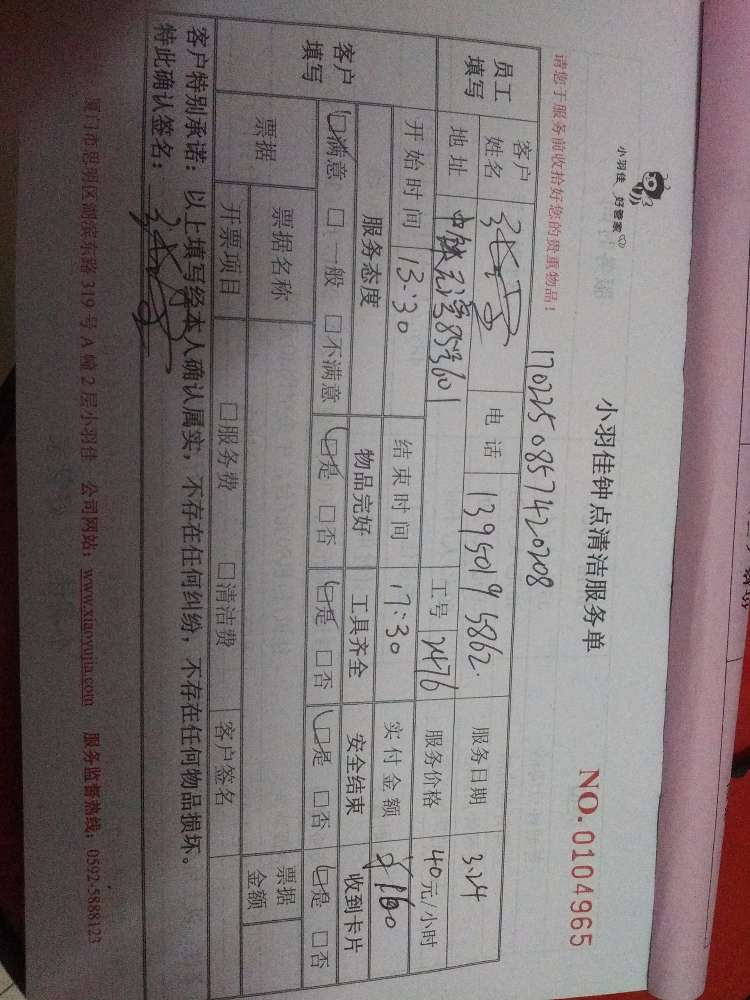 小羽佳 好管家
小羽佳钟点清洁服务单
NO. 0104965
请您于服务前收拾好您的贵重物品！
170225085742 0208
员工填写
客户姓名
电话 13950195862.
服务日期 3.24
地址 8号601
工号 2476
服务价格 40元/小时
开始时间 13:30
结束时间 17:30
实付金额 ¥160
客户填写
服务态度 物品完好 工具齐全 安全结束 收到卡片
☑满意 □一般 □不满意 ☑是 □否 ☑是 □否 ☑是 □否 ☑是 □否
票据
票据名称
票据金额
开票项目 □服务费 □清洁费 客户签名
客户特别承诺：以上填写经本人确认属实，不存在任何纠纷，不存在任何物品损坏。
特此确认签名：
厦门市思明区湖滨东路 319 号 A 幢 2 层小羽佳 公司网站：www.xiaoyujia.com 服务监督热线：0592-5888123